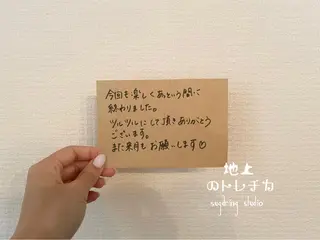 今回も楽しくあっという間に
終わりました。
ツルツルにして頂きありがとう
ございます。
また来月もお願いします
地上
のトレチカ
sugaring studio